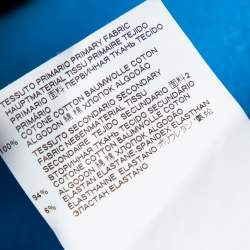 TESSUTO PRIMARIO PRIMARY FABRIC
HAUPTMATERIAL TISSU PRIMAIRE TEJIDO
PRIMARIO 面料 ПЕРВИЧНАЯ ТКАНЬ TECIDO
PRIMÁRIO
100% COTONE COTTON BAUMWOLLE COTON
ALGODON 綿 棉 ХЛОПОК ALGODÃO
TESSUTO SECONDARIO SECONDARY
FABRIC NEBENMATERIAL TISSU
SECONDAIRE TEJIDO SECUNDARIO 面料-2
ВТОРИЧНАЯ ТКАНЬ TECIDO SECUNDÁRIO
94% COTONE COTTON BAUMWOLLE COTON
ALGODON 綿 棉 ХЛОПОК ALGODÃO
6% ELASTAN ELASTANE-SPANDEX ELASTHAN
ELASTHANNE ELASTANO ポリウレタン 氨纶
ЭЛАСТАН ELASTANO